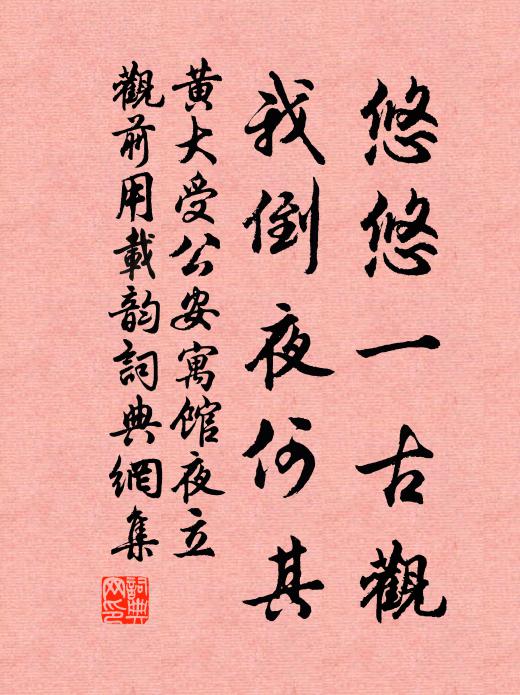 悠悠一古觀
我倒夜何其
黃大受公安寓館夜立
觀前用載韵詞典網集
詞典
网印